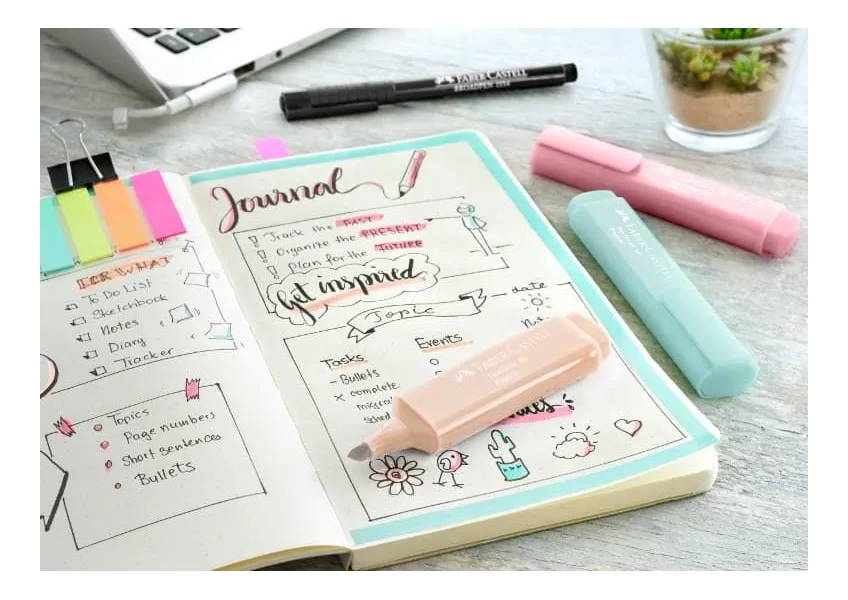 FABER-CASTELL
BROADPEN 1554
FOR WHAT
To Do List
Sketchbook
Notes
Diary
Tracker
Topics
Page numbers
Short sentences
Bullets
Journal
! Track the PAST
! Organize the PRESENT
! Plan for the FUTURE
Get inspired
Topic
date
Tasks
Events
- Bullets
x complete
FABER-CASTELL
FABER-CASTELL
FABER-CASTELL